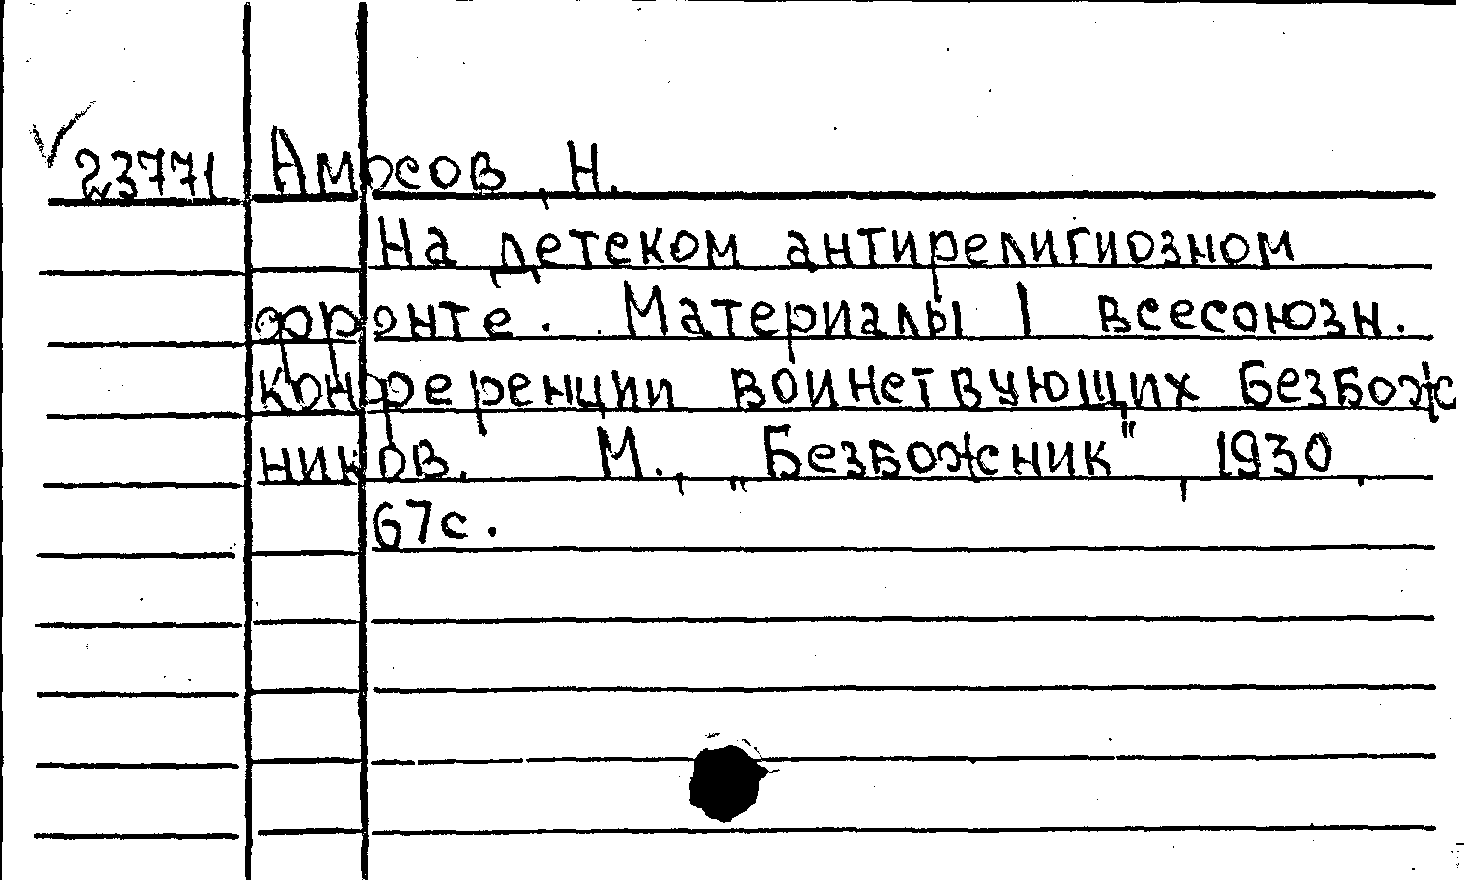 23771 Амосов, Н.
На детском антирелигиозном
фронте. Материалы I всесоюзн.
конференции воинствующих безбож
ников. М., „Безбожник", 1930,
67с.